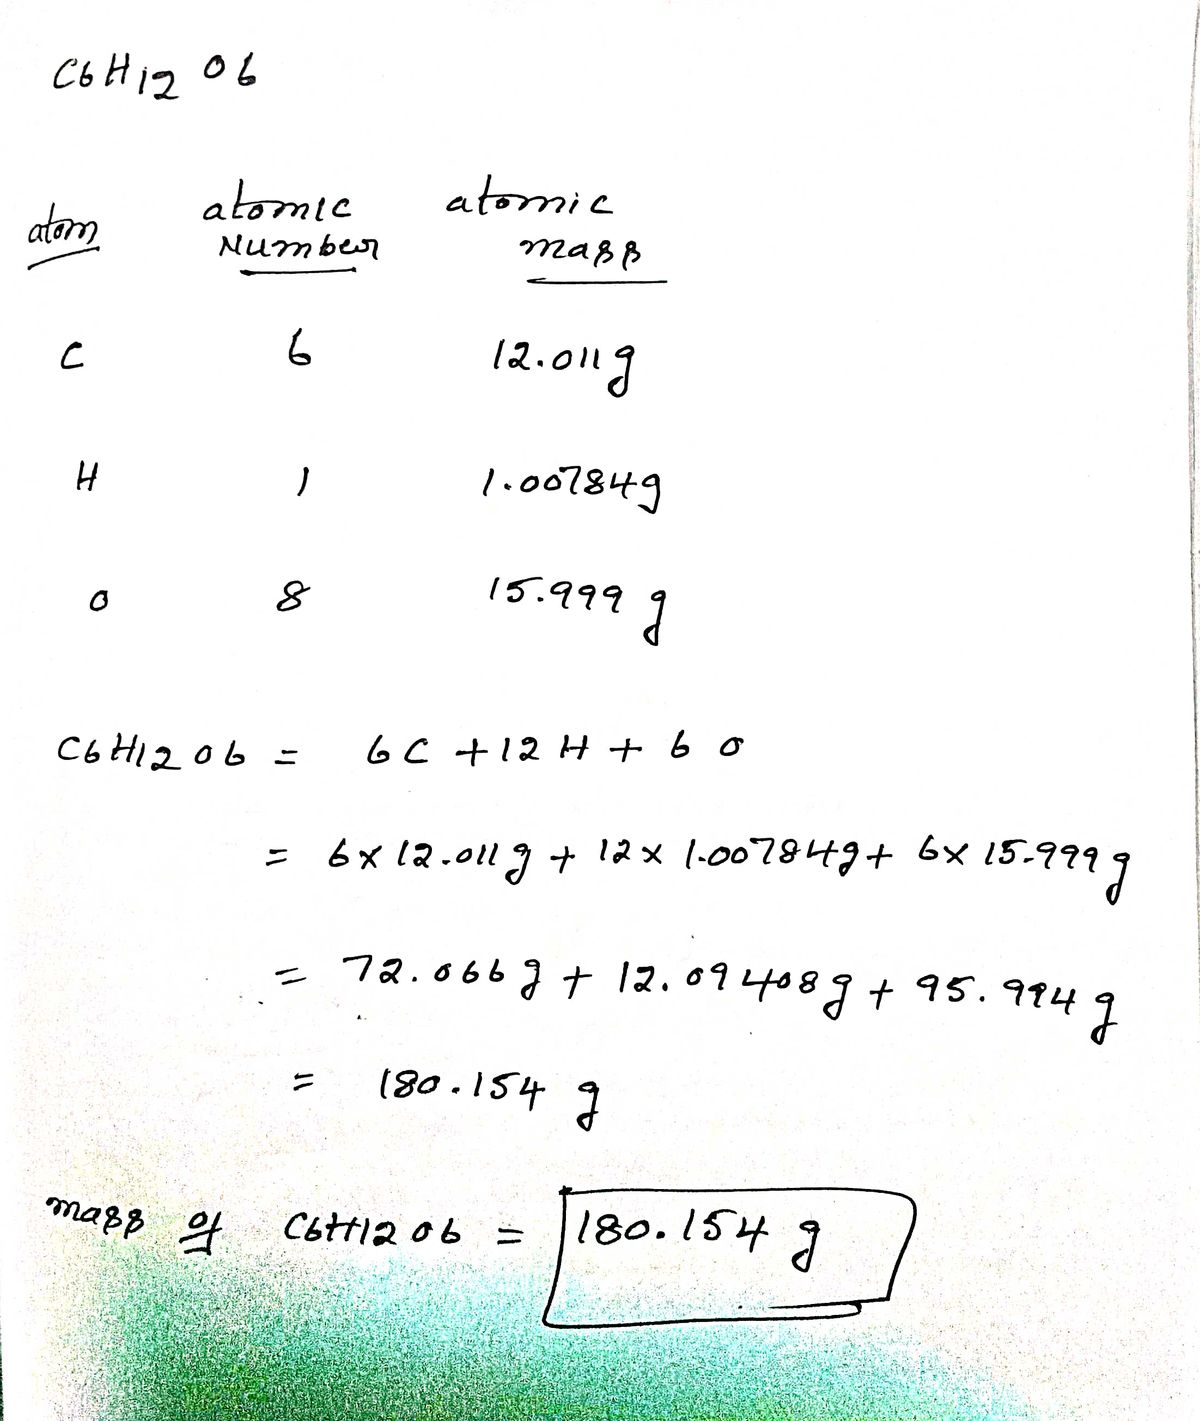 C6H12O6
atom atomic Number atomic mass
C 6 12.011g
H 1 1.00784g
O 8 15.999 g
C6H12O6 = 6C + 12H + 6O
= 6 x 12.011g + 12 x 1.007849g + 6x 15.999g
= 72.066g + 12.09408g + 95.994g
= 180.154 g
mass of C6H12O6 = 180.154 g